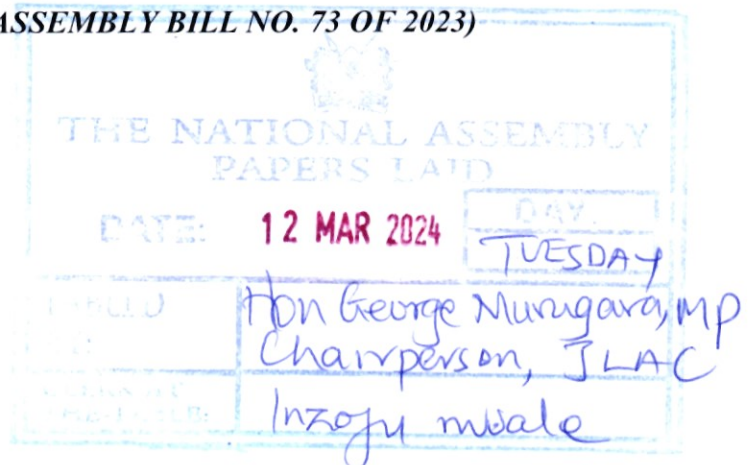 ASSEMBLY BILL NO. 73 OF 2023)
THE NATIONAL ASSEMBLY
PAPERS LAID
DATE: 12 MAR 2024 DAY.
TUESDAY
Hon George Murugara, MP
Chairperson, JLAC
Inzofu mwale